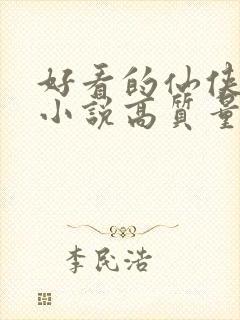 好看的仙侠
小說高質量
李民浩